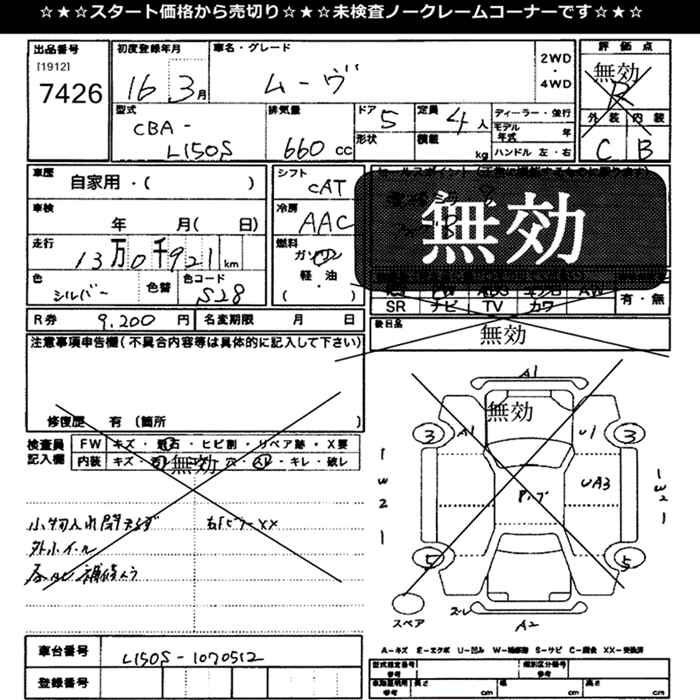 ☆★☆スタート価格から売切り☆★☆未検査ノークレームコーナーです☆★☆
出品番号 初度登録年月 車名・グレード 2WD・4WD 評価点
[1912]
7426 16 3月 ムーヴ 無効 R
型式 排気量 ドア 5 定員 4人 ディーラー・並行 外装 内装
CBA-
L150S 660cc 形状 積載 kg モデル年式 年 ハンドル 左・右 C B
車歴 自家用・( ) シフト CAT
車検 年 月( 日) 冷房 AAC
無効
走行 13万0千921km 燃料 ガソリン
軽・油
( )
色 シルバー 色替 色コード S28
SR ナビ TV カワ 有・無
R券 9,200円 名変期限 月 日 後日品 無効
注意事項申告欄(不具合内容等は具体的に記入して下さい)
修復歴 有 (箇所 )
検査員記入欄 FW キズ・飛石・ヒビ割・リペア跡・X要
内装 キズ・ 無効 穴・ ・キレ・破レ
A1
無効
3 A1 U1 3
1 W2 1 UA3 1 W2 1
5 5
スペア A2
小物入れ閉まらず
外ホイール
A-キズ E-エクボ U-凹ミ W-補修跡 S-サビ C-腐食 XX-交換済
車台番号 L150S-1070512
登録番号
型式指定番号 参考 類別区分番号 参考
長さ cm 幅 cm 高さ cm